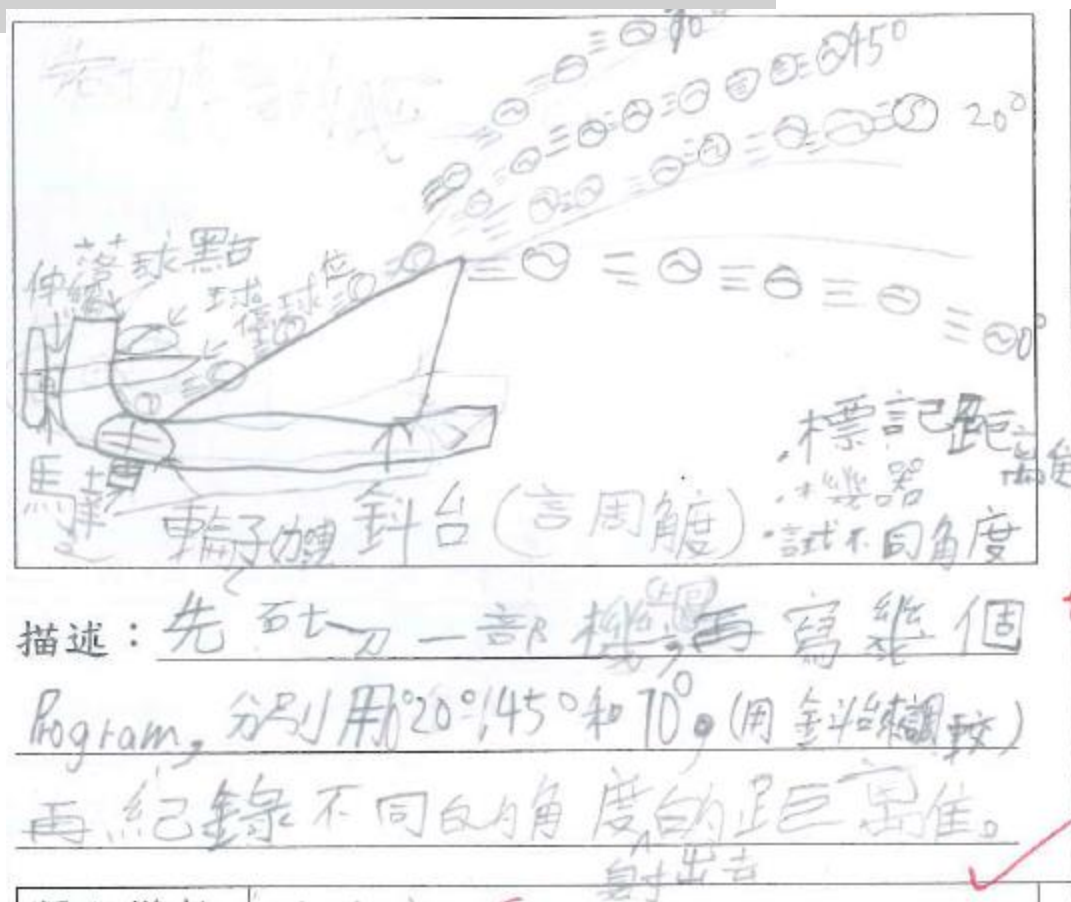 70°
45°
20°
0°
落球點
伸縮
球
球位
馬達
輪子
斜台(調角度)
·標記距離
·機器
·試不同角度
描述：先砌一部機,再寫幾個
Program,分別用0°20°,45°和70°。(用斜台來調較)
再紀錄不同的角度射出去的距離。